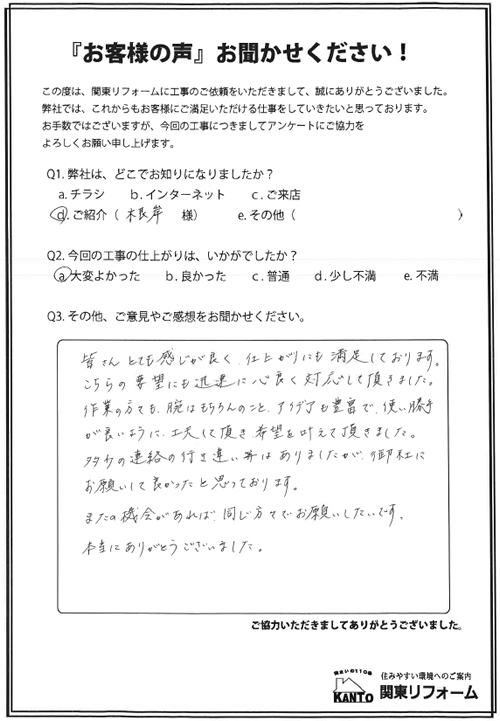 『お客様の声』お聞かせください！
この度は、関東リフォームに工事のご依頼をいただきまして、誠にありがとうございました。
弊社では、これからもお客様にご満足いただける仕事をしていきたいと思っております。
お手数ではございますが、今回の工事につきましてアンケートにご協力を
よろしくお願い申し上げます。
Q1. 弊社は、どこでお知りになりましたか？
a. チラシ b. インターネット c. ご来店
d. ご紹介（ 根岸 様） e. その他（ ）
Q2. 今回の工事の仕上がりは、いかがでしたか？
a. 大変よかった b. 良かった c. 普通 d. 少し不満 e. 不満
Q3. その他、ご意見やご感想をお聞かせください。
皆さんとても感じが良く、仕上がりにも満足しております。
こちらの要望にも迅速に心良く対応して頂きました。
作業の方でも、腕はもちろんのこと、アイデアも豊富で、使い勝手
が良いように、工夫して頂き希望を叶えて頂きました。
多少の連絡の行き違い等はありましたが、御社に
お願いして良かったと思っております。
またの機会があれば、同じ方々でお願いしたいです。
本当にありがとうございました。
ご協力いただきましてありがとうございました。
住まいの110番
KANTO
住みやすい環境へのご案内
関東リフォーム